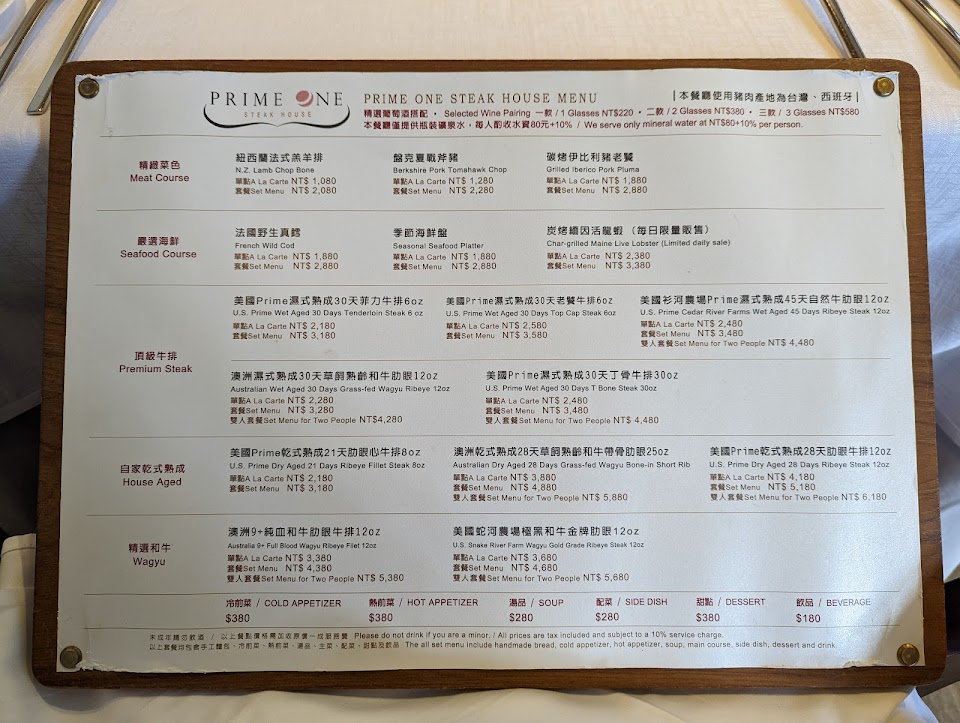 PRIME ONE
STEAK HOUSE
PRIME ONE STEAK HOUSE MENU
|本餐廳使用豬肉產地為台灣、西班牙|
精選葡萄酒搭配 • Selected Wine Pairing 一款 / 1 Glasses NT$220 • 二款 / 2 Glasses NT$380 • 三款 / 3 Glasses NT$580
本餐廳僅提供瓶裝礦泉水，每人酌收水資80元+10% / We serve only mineral water at NT$80+10% per person.
精緻菜色
Meat Course
紐西蘭法式羔羊排
N.Z. Lamb Chop Bone
單點A La Carte NT$ 1,080
套餐Set Menu NT$ 2,080
盤克夏戰斧豬
Berkshire Pork Tomahawk Chop
單點A La Carte NT$ 1,280
套餐Set Menu NT$ 2,280
碳烤伊比利豬老饕
Grilled Iberico Pork Pluma
單點A La Carte NT$ 1,880
套餐Set Menu NT$ 2,880
嚴選海鮮
Seafood Course
法國野生真鱈
French Wild Cod
單點A La Carte NT$ 1,880
套餐Set Menu NT$ 2,880
季節海鮮盤
Seasonal Seafood Platter
單點A La Carte NT$ 1,880
套餐Set Menu NT$ 2,880
炭烤緬因活龍蝦（每日限量販售）
Char-grilled Maine Live Lobster (Limited daily sale)
單點A La Carte NT$ 2,380
套餐Set Menu NT$ 3,380
頂級牛排
Premium Steak
美國Prime濕式熟成30天菲力牛排6oz
U.S. Prime Wet Aged 30 Days Tenderloin Steak 6 oz
單點A La Carte NT$ 2,180
套餐Set Menu NT$ 3,180
美國Prime濕式熟成30天老饕牛排6oz
U.S. Prime Wet Aged 30 Days Top Cap Steak 6oz
單點A La Carte NT$ 2,580
套餐Set Menu NT$ 3,580
美國衫河農場Prime濕式熟成45天自然牛肋眼12oz
U.S. Prime Cedar River Farms Wet Aged 45 Days Ribeye Steak 12oz
單點A La Carte NT$ 2,480
套餐Set Menu NT$ 3,480
雙人套餐Set Menu for Two People NT$ 4,480
澳洲濕式熟成30天草飼熟齡和牛肋眼12oz
Australian Wet Aged 30 Days Grass-fed Wagyu Ribeye 12oz
單點A La Carte NT$ 2,280
套餐Set Menu NT$ 3,280
雙人套餐Set Menu for Two People NT$4,280
美國Prime濕式熟成30天丁骨牛排30oz
U.S. Prime Wet Aged 30 Days T Bone Steak 30oz
單點A La Carte NT$ 2,480
套餐Set Menu NT$ 3,480
雙人套餐Set Menu for Two People NT$ 4,480
自家乾式熟成
House Aged
美國Prime乾式熟成21天肋眼心牛排8oz
U.S. Prime Dry Aged 21 Days Ribeye Fillet Steak 8oz
單點A La Carte NT$ 2,180
套餐Set Menu NT$ 3,180
澳洲乾式熟成28天草飼熟齡和牛帶骨肋眼25oz
Australian Dry Aged 28 Days Grass-fed Wagyu Bone-in Short Rib
單點A La Carte NT$ 3,880
套餐Set Menu NT$ 4,880
雙人套餐Set Menu for Two People NT$ 5,880
美國Prime乾式熟成28天肋眼牛排12oz
U.S. Prime Dry Aged 28 Days Ribeye Steak 12oz
單點A La Carte NT$ 4,180
套餐Set Menu NT$ 5,180
雙人套餐Set Menu for Two People NT$ 6,180
精選和牛
Wagyu
澳洲9+純血和牛肋眼牛排12oz
Australia 9+ Full Blood Wagyu Ribeye Filet 12oz
單點A La Carte NT$ 3,380
套餐Set Menu NT$ 4,380
雙人套餐Set Menu for Two People NT$ 5,380
美國蛇河農場極黑和牛金牌肋眼12oz
U.S. Snake River Farm Wagyu Gold Grade Ribeye Steak 12oz
單點A La Carte NT$ 3,680
套餐Set Menu NT$ 4,680
雙人套餐Set Menu for Two People NT$ 5,680
冷前菜 / COLD APPETIZER 熱前菜 / HOT APPETIZER 湯品 / SOUP 配菜 / SIDE DISH 甜點 / DESSERT 飲品 / BEVERAGE
$380 $380 $280 $280 $380 $180
未成年請勿飲酒 / 以上餐點價格需加收原價一成服務費 Please do not drink if you are a minor. / All prices are tax included and subject to a 10% service charge.
以上套餐均包含手工麵包、冷前菜、熱前菜、湯品、主菜、配菜、甜點及飲品 The all set menu include handmade bread, cold appetizer, hot appetizer, soup, main course, side dish, dessert and drink.